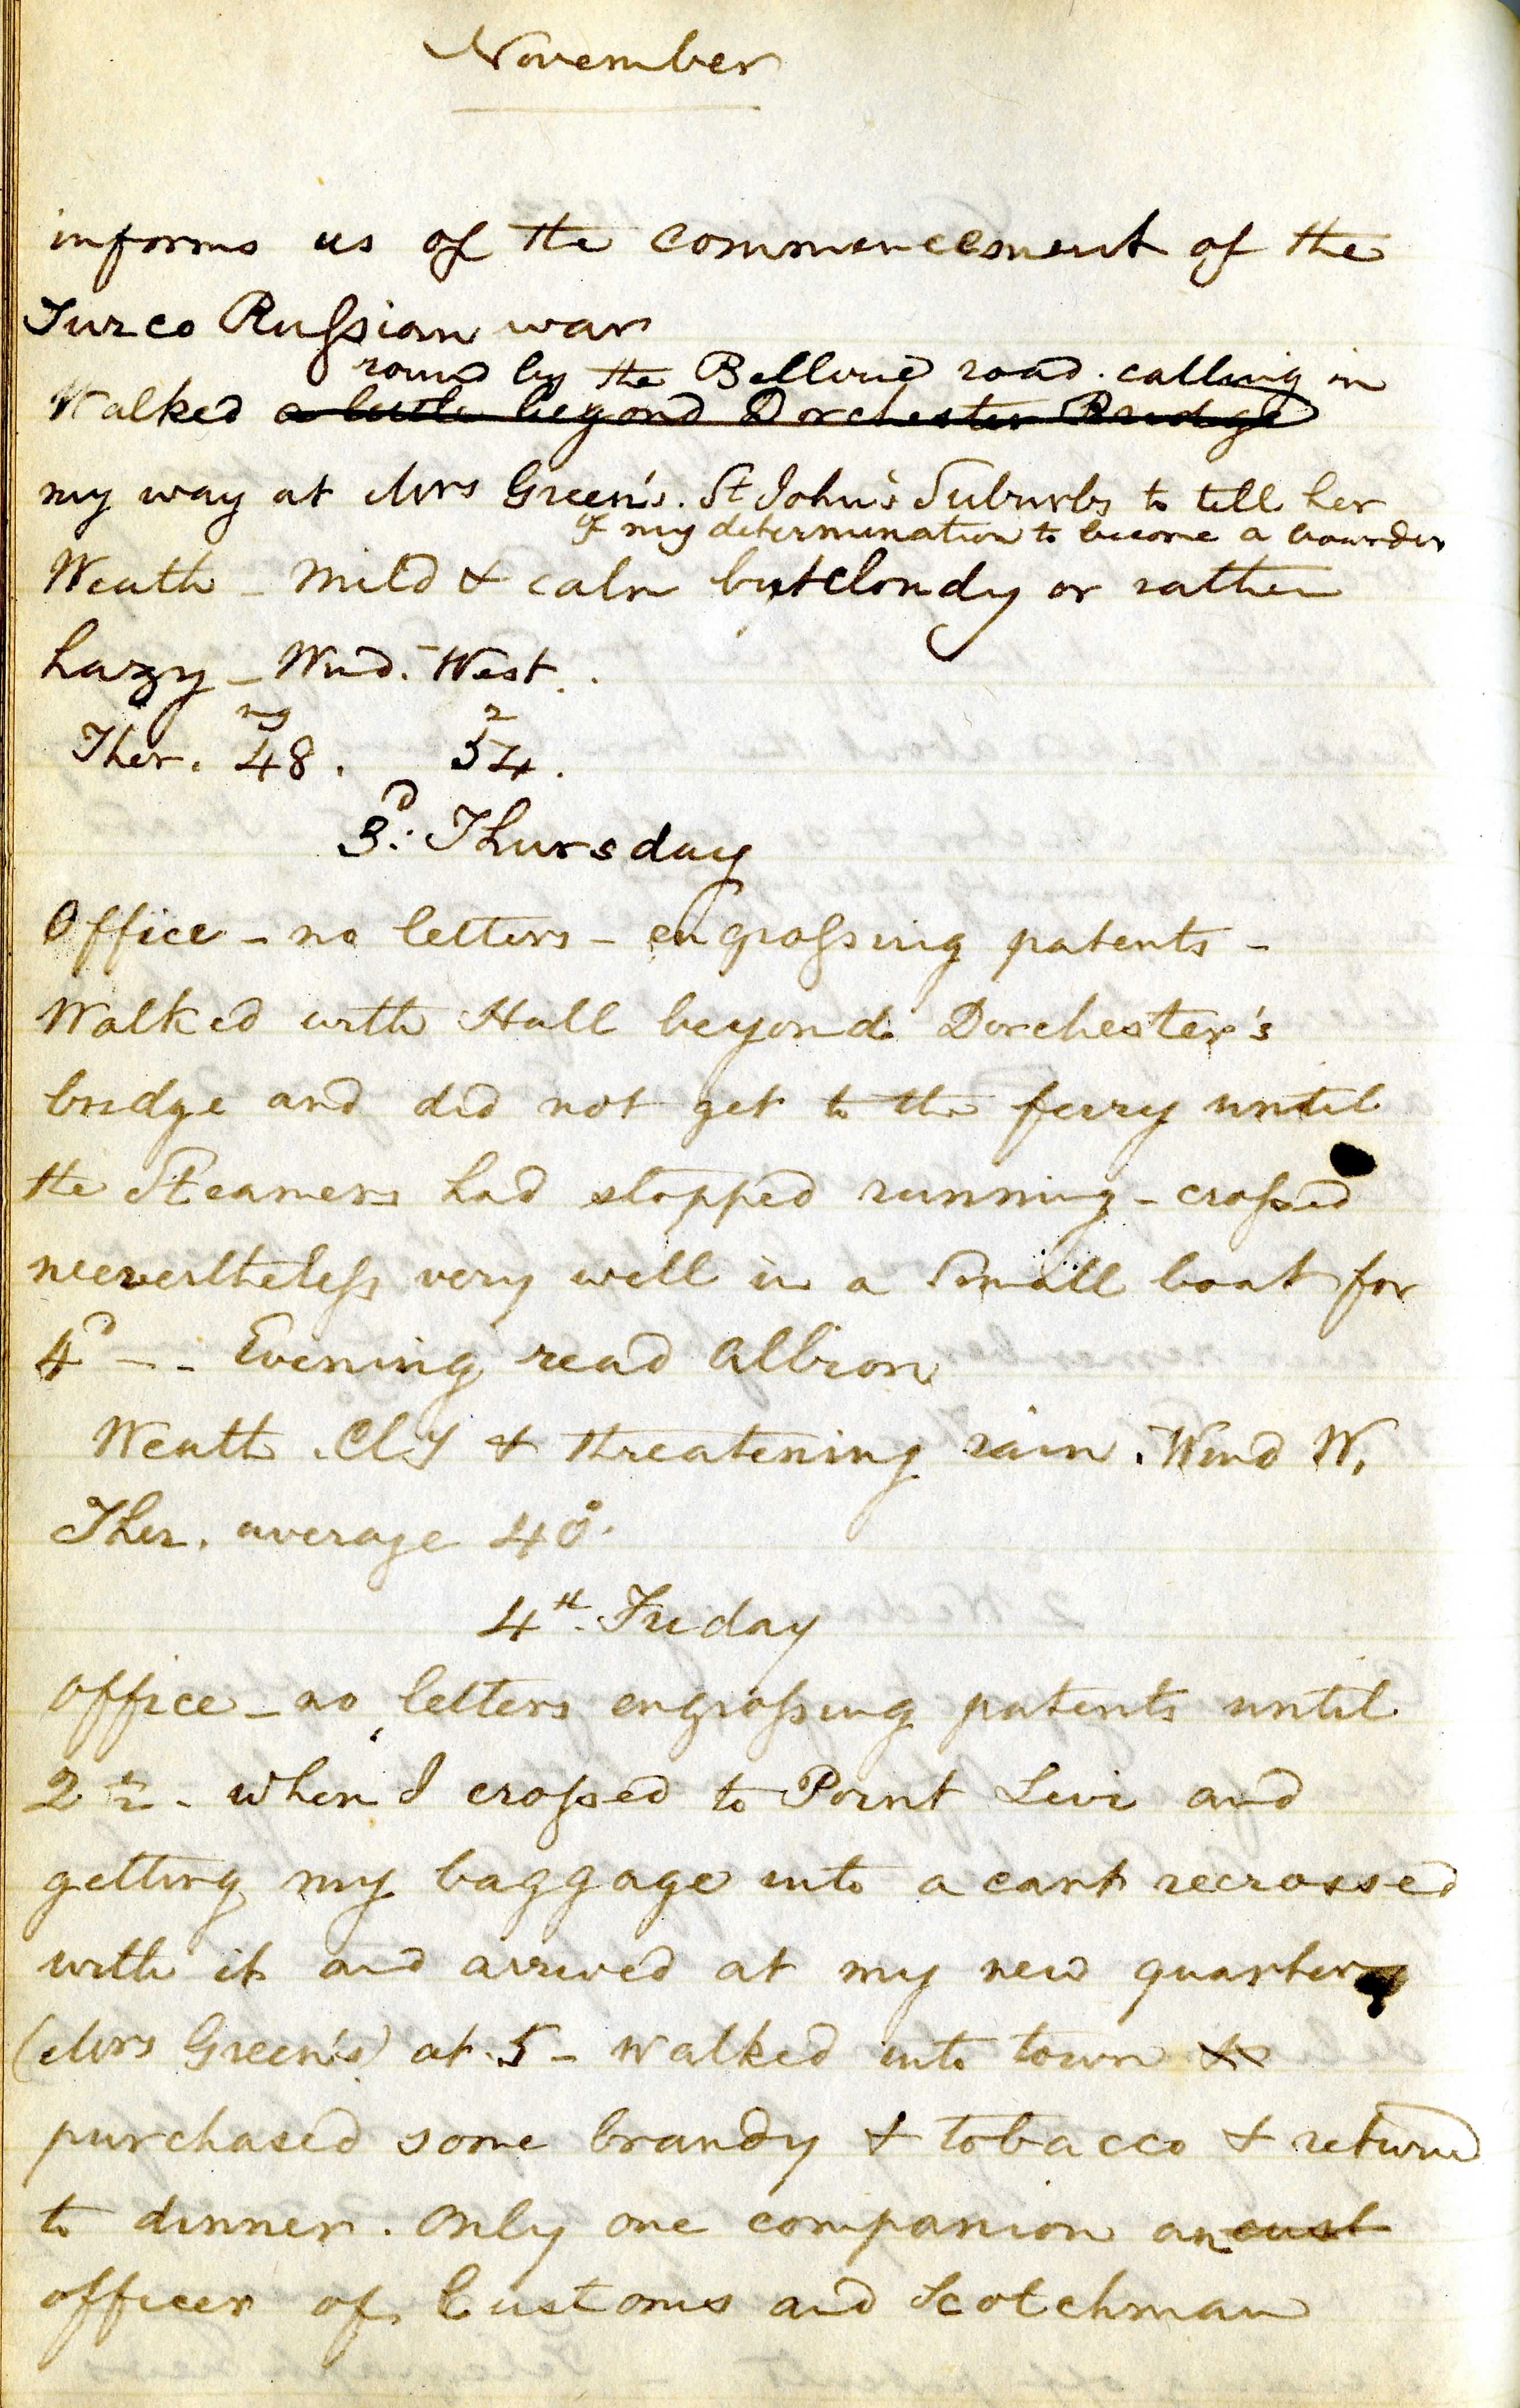 November
informs us of the commencement of the
Turco Russian war
round by the Bellvue road. calling in
Walked a little beyond Dorchester Bridge
my way at Mrs Green's. St John's Suburbs to tell her
of my determination to become a boarder
Weath - mild & calm but cloudy or rather
hazy - Wind. West.
mg 2
Ther. 48. 54.
3d: Thursday
Office - no letters - engrossing patents -
Walked with Hall beyond Dorchester's
bridge and did not get to the ferry until
the Steamers had stopped running - crossed
neevertheless very well in a small boat for
4d - - Evening read Albion
Weath. Cly & threatening rain. Wind W.
Ther. average 40°.
4th. Friday
Office - no letters engrossing patents until
2 ½ - when I crossed to Point Levi and
getting my baggage into a cart recrossed
with it and arrived at my new quarters
(Mrs Green's) at 5 - walked into town &
purchased some brandy & tobacco & returnd
to dinner. Only one companion an cust
officer of Customs and Scotchman